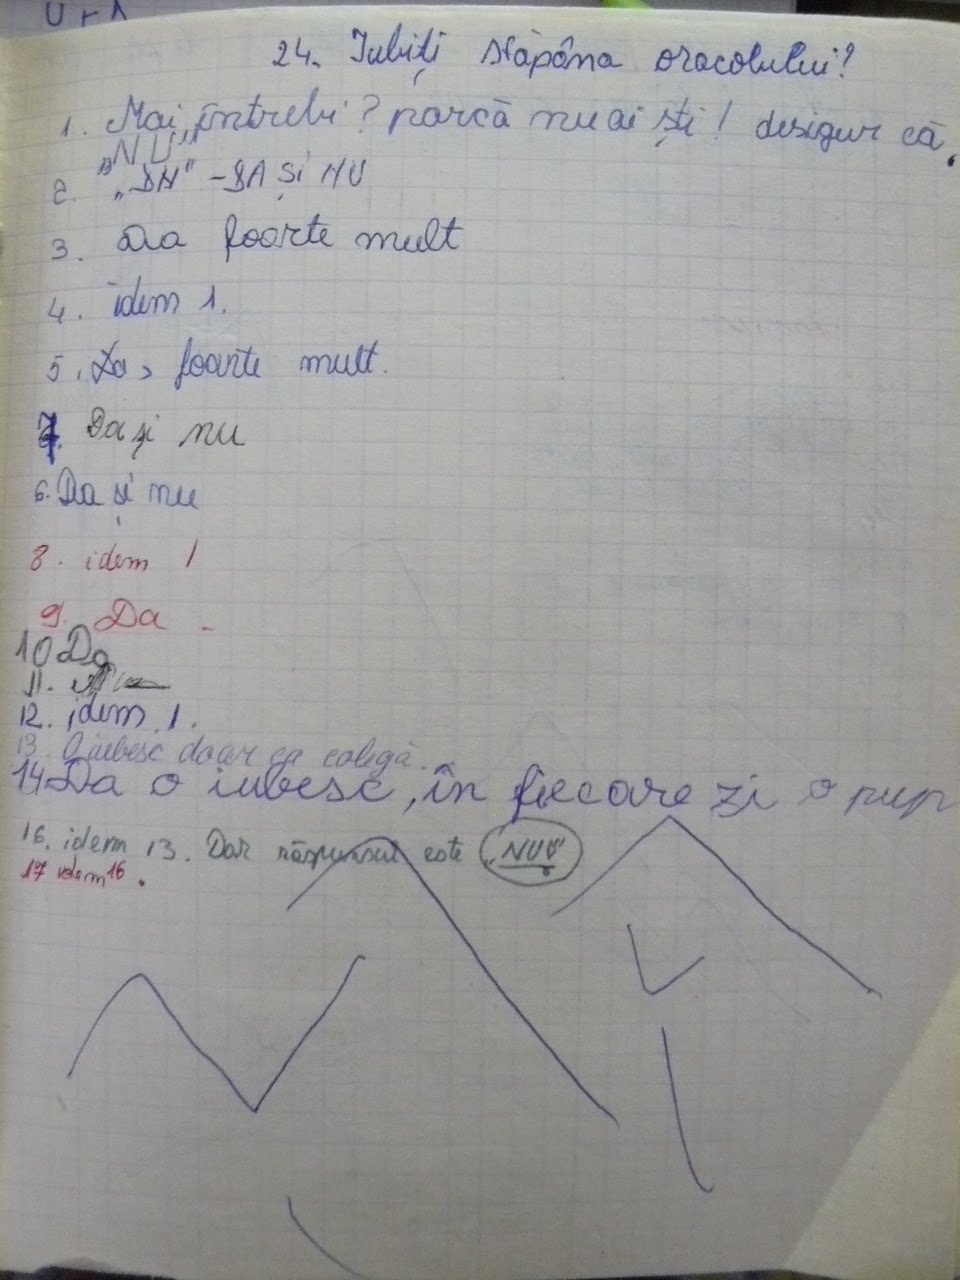 24. Iubiți stăpâna oracolului?
1. Mai întrebi? parcă nu ai ști! desigur că
"NU"
2. "DA" - DA ȘI NU
3. Da foarte mult
4. idem 1.
5. Da, foarte mult.
7. Da și nu
6. Da și nu
8. idem 1
9. Da
10 Da
11.
12. idem 1.
13. O iubesc doar ca colegă.
14 Da o iubesc, în fiecare zi o pup
16. idem 13. Dar răspunsul este "NU"
17 idem 16.